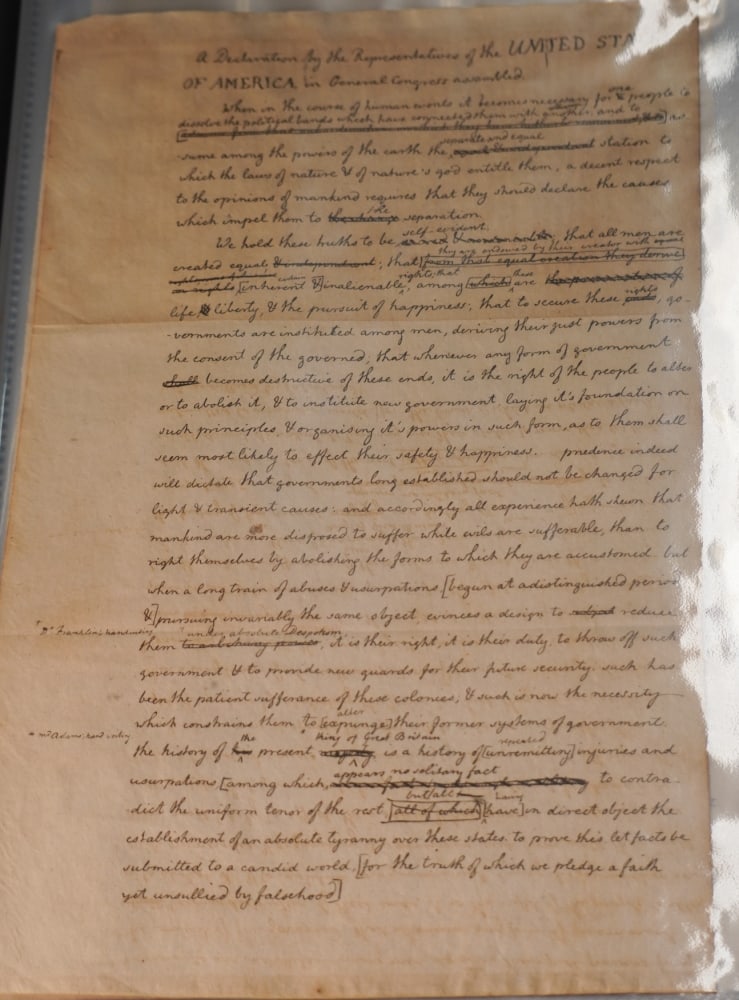 A Declaration by the Representatives of the UNITED STA
OF AMERICA, in General Congress assembled.
When in the course of human events it becomes necessary for one people to
dissolve the political bands which have connected them with another, and to
as-
separate and equal
-sume among the powers of the earth the station to
which the laws of nature & of nature's god entitle them, a decent respect
to the opinions of mankind requires that they should declare the causes
which impel them to the change the separation.
self-evident
We hold these truths to be that all men are
they are endowed by their creator with
created equal & independent; that from that equal creation they derive
certain
rights; that these
[inherent &] inalienable, among which are
life, liberty, & the pursuit of happiness; that to secure these rights, go-
-vernments are instituted among men, deriving their just powers from
the consent of the governed; that whenever any form of government
shall becomes destructive of these ends, it is the right of the people to alter
or to abolish it, & to institute new government, laying it's foundation on
such principles, & organising it's powers in such form, as to them shall
seem most likely to effect their safety & happiness. prudence indeed
will dictate that governments long established should not be changed for
light & transient causes: and accordingly all experience hath shewn that
mankind are more disposed to suffer while evils are sufferable, than to
right themselves by abolishing the forms to which they are accustomed. but
when a long train of abuses & usurpations [begun at a distinguished period
&] pursuing invariably the same object, evinces a design to reduce
* Dr. Franklin's handwriting
* under absolute Despotism
them to arbitrary power, it is their right, it is their duty, to throw off such
government & to provide new guards for their future security. such has
been the patient sufferance of these colonies; & such is now the necessity
alter
which constrains them to [expunge] their former systems of government.
* Mr. Adams' handwriting
the * king of Great Britain repeated
the history of his present is a history of [unremitting] injuries and
appears no solitary fact
usurpations [among which, to contra-
but all having
dict the uniform tenor of the rest [all of which] [have] in direct object the
establishment of an absolute tyranny over these states. to prove this let facts be
submitted to a candid world, [for the truth of which we pledge a faith
yet unsullied by falsehood]